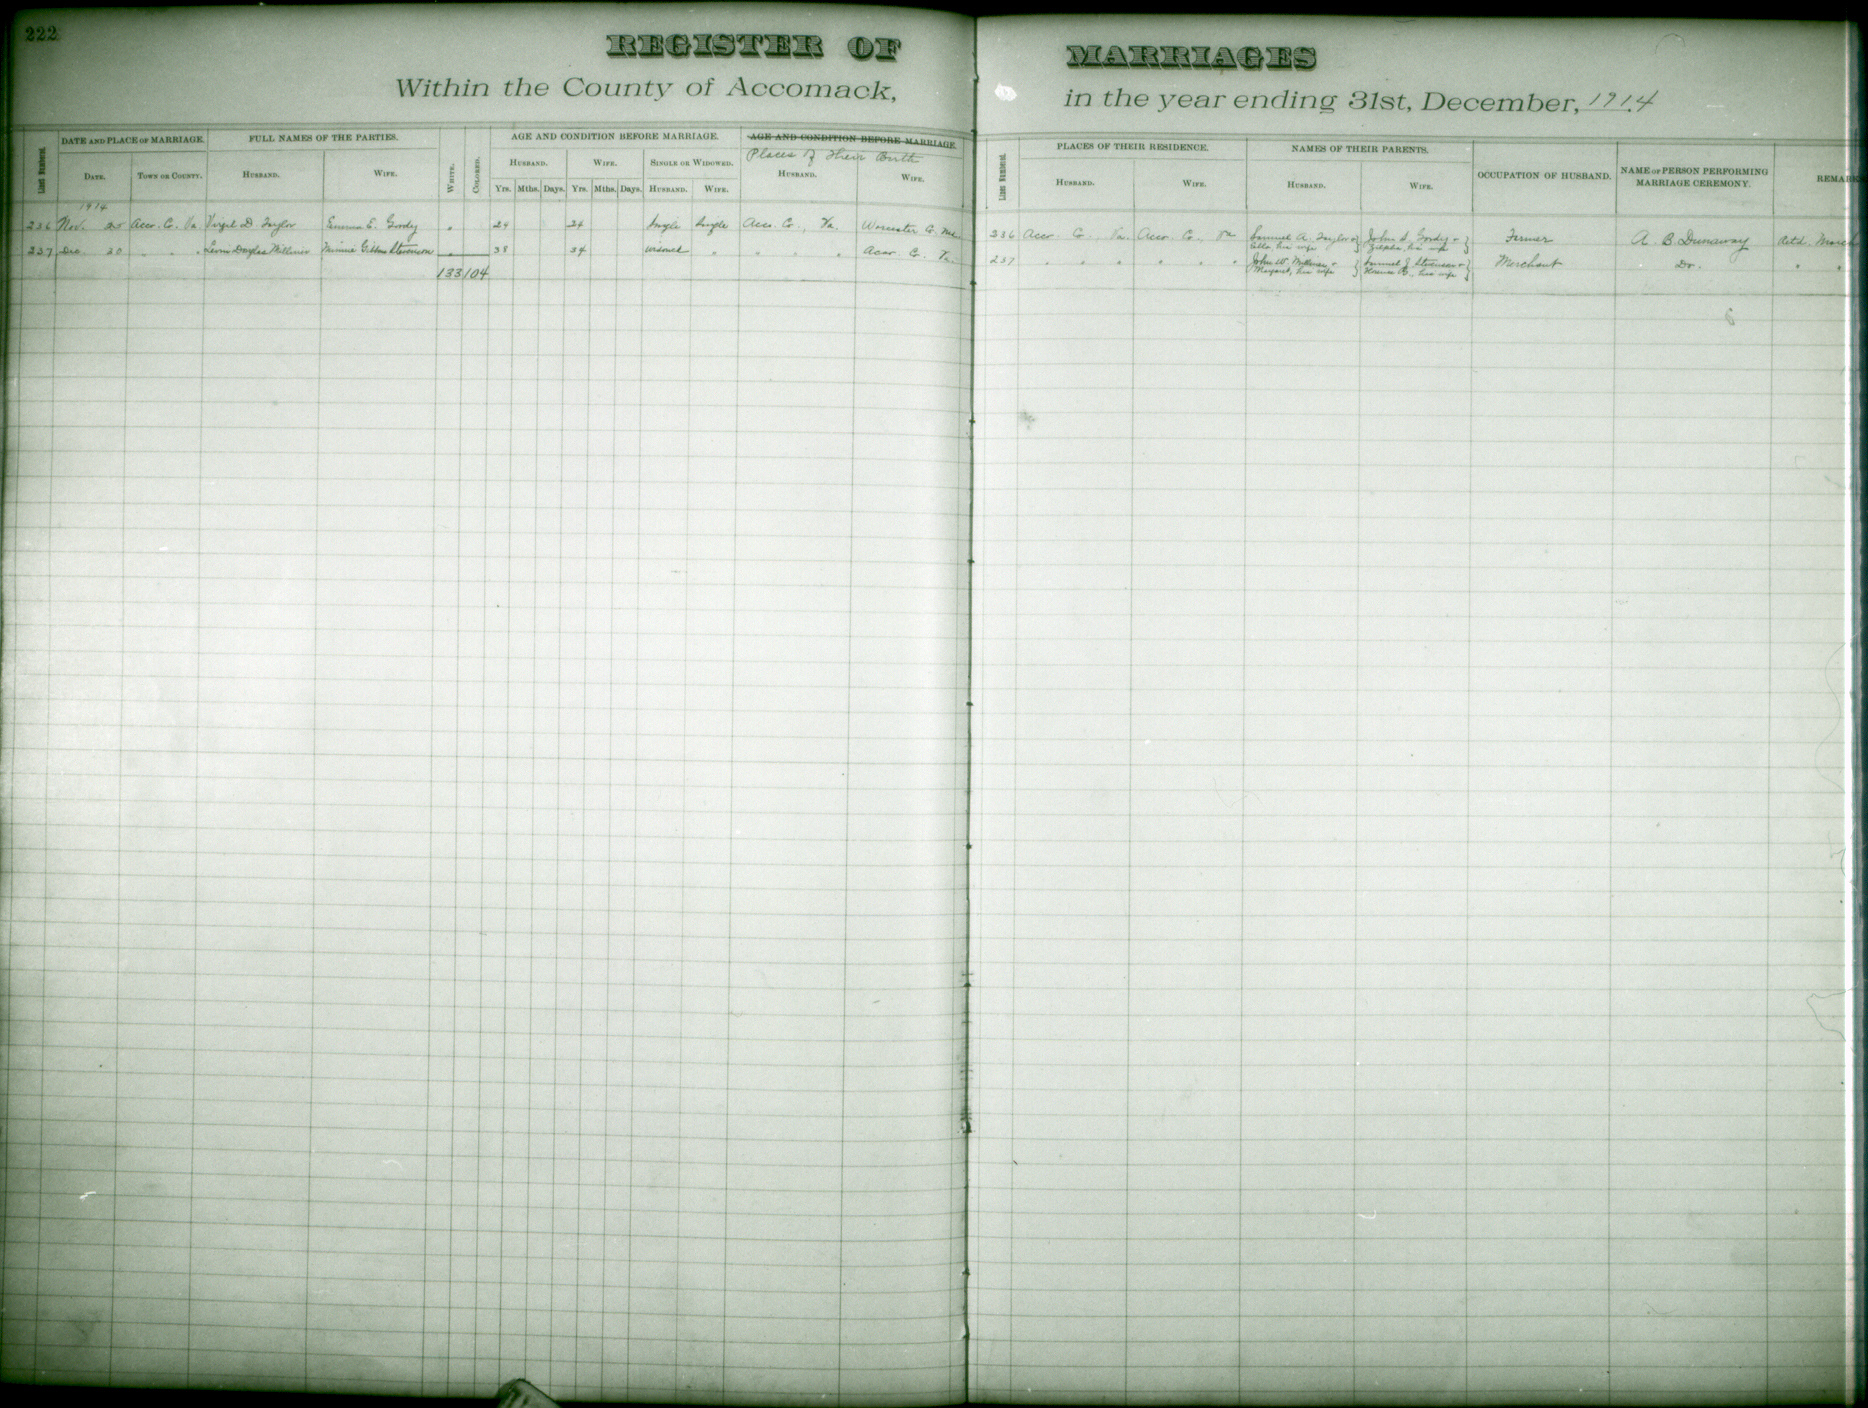 222
REGISTER OF MARRIAGES
Within the County of Accomack, in the year ending 31st, December, 1914
Line Numbers.
DATE AND PLACE OF MARRIAGE.
FULL NAMES OF THE PARTIES.
WHITE.
COLORED.
AGE AND CONDITION BEFORE MARRIAGE.
AGE AND CONDITION BEFORE MARRIAGE.
Places of their Birth
DATE.
TOWN OR COUNTY.
HUSBAND.
WIFE.
HUSBAND.
WIFE.
SINGLE OR WIDOWED.
HUSBAND.
WIFE.
Yrs. Mths. Days. Yrs. Mths. Days. HUSBAND. WIFE.
1914
236 Nov. 25 Acco. Co. Va. Virgil D. Taylor Emma E. Gordy " 24 24 Single Single Acco. Co., Va. Worcester Co. Md.
237 Dec 30 " " " Minnie Stevenson " 38 34 " " " " Acco. Co. Va.
133 104
Line Numbers.
PLACES OF THEIR RESIDENCE.
NAMES OF THEIR PARENTS.
OCCUPATION OF HUSBAND.
NAME OF PERSON PERFORMING
MARRIAGE CEREMONY.
REMAR
HUSBAND.
WIFE.
HUSBAND.
WIFE.
236 Acco. Co., Va. Acco. Co., Va. Samuel A. Taylor & John Gordy & Farmer A. B. Dunaway March
his wife his wife
237 " " " " " " John W. & Samuel J. Stevenson & Merchant Do. " "
Margaret, his wife his wife